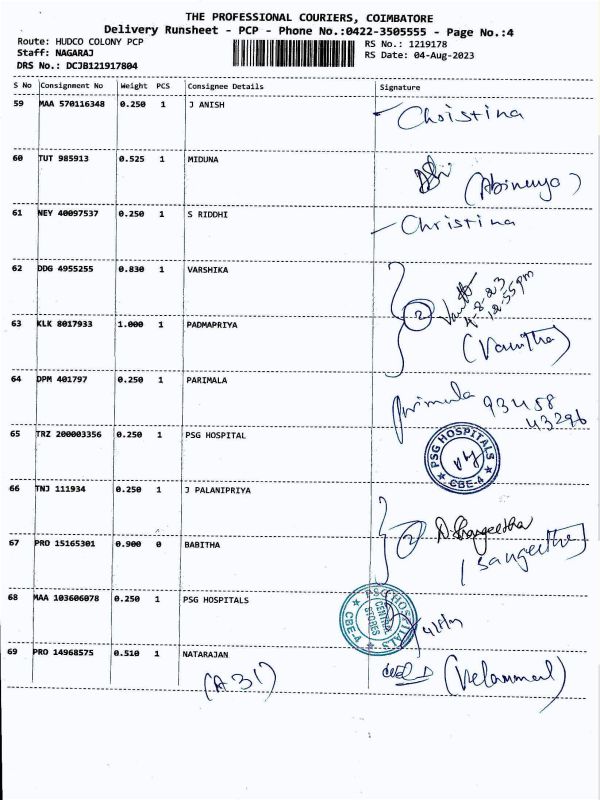 THE PROFESSIONAL COURIERS, COIMBATORE
Delivery Runsheet - PCP - Phone No.:0422-3505555 - Page No.:4
Route: HUDCO COLONY PCP RS No.: 1219178
Staff: NAGARAJ RS Date: 04-Aug-2023
DRS No.: DCJB121917804
S No Consignment No Weight PCS Consignee Details Signature
59 MAA 570116348 0.250 1 J ANISH Christina
60 TUT 985913 0.525 1 MIDUNA (Abinaya)
61 NEY 40097537 0.250 1 S RIDDHI Christina
62 DDG 4955255 0.830 1 VARSHIKA
2 4-8-23
12-55pm
63 KLK 8017933 1.000 1 PADMAPRIYA (Vanitha)
64 DPM 401797 0.250 1 PARIMALA Parimala 93458
43296
65 TRZ 200003356 0.250 1 PSG HOSPITAL PSG HOSPITALS CBE-4
66 TNJ 111934 0.250 1 J PALANIPRIYA
2 D. Sangeetha
67 PRO 15165301 0.900 0 BABITHA (Sangeetha)
68 MAA 103606078 0.250 1 PSG HOSPITALS PSG HOSPITALS CENTRAL STORES CBE-4
69 PRO 14968575 0.510 1 NATARAJAN (Velammal)
(A31)